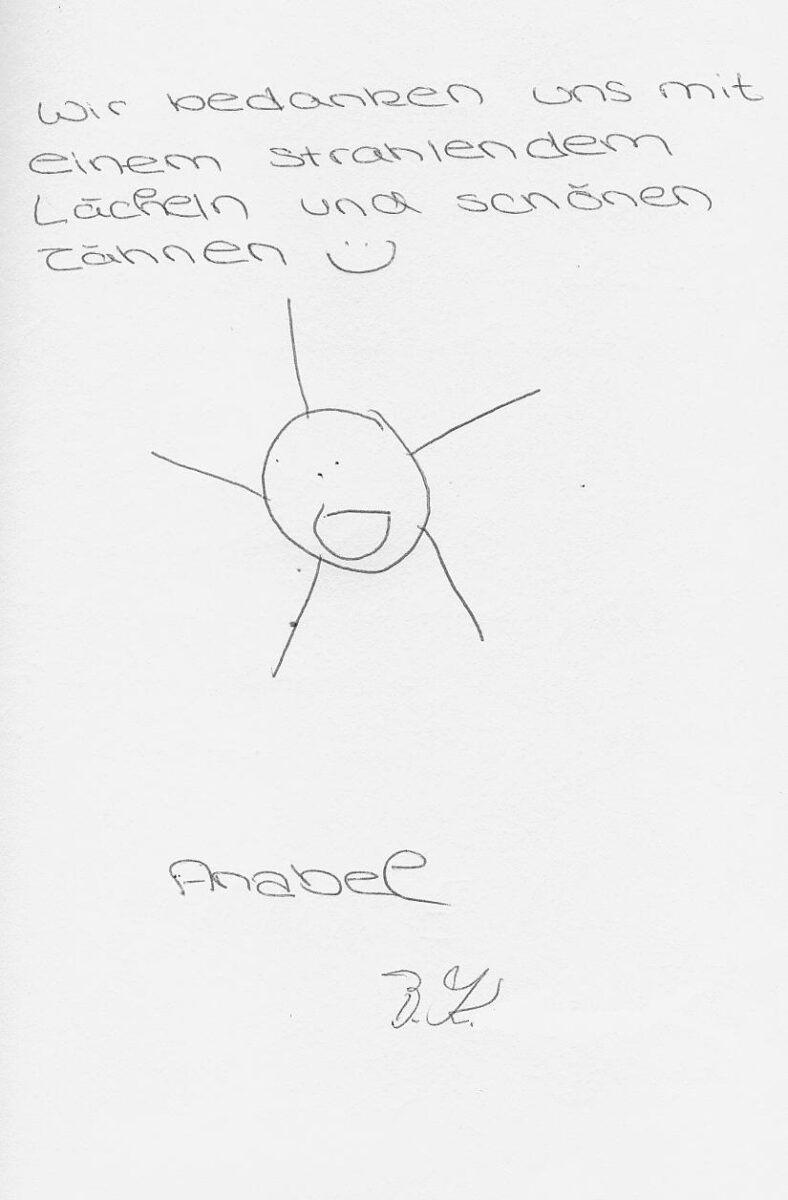 Wir bedanken uns mit
einem strahlendem
Lächeln und schönen
Zähnen
Anabel